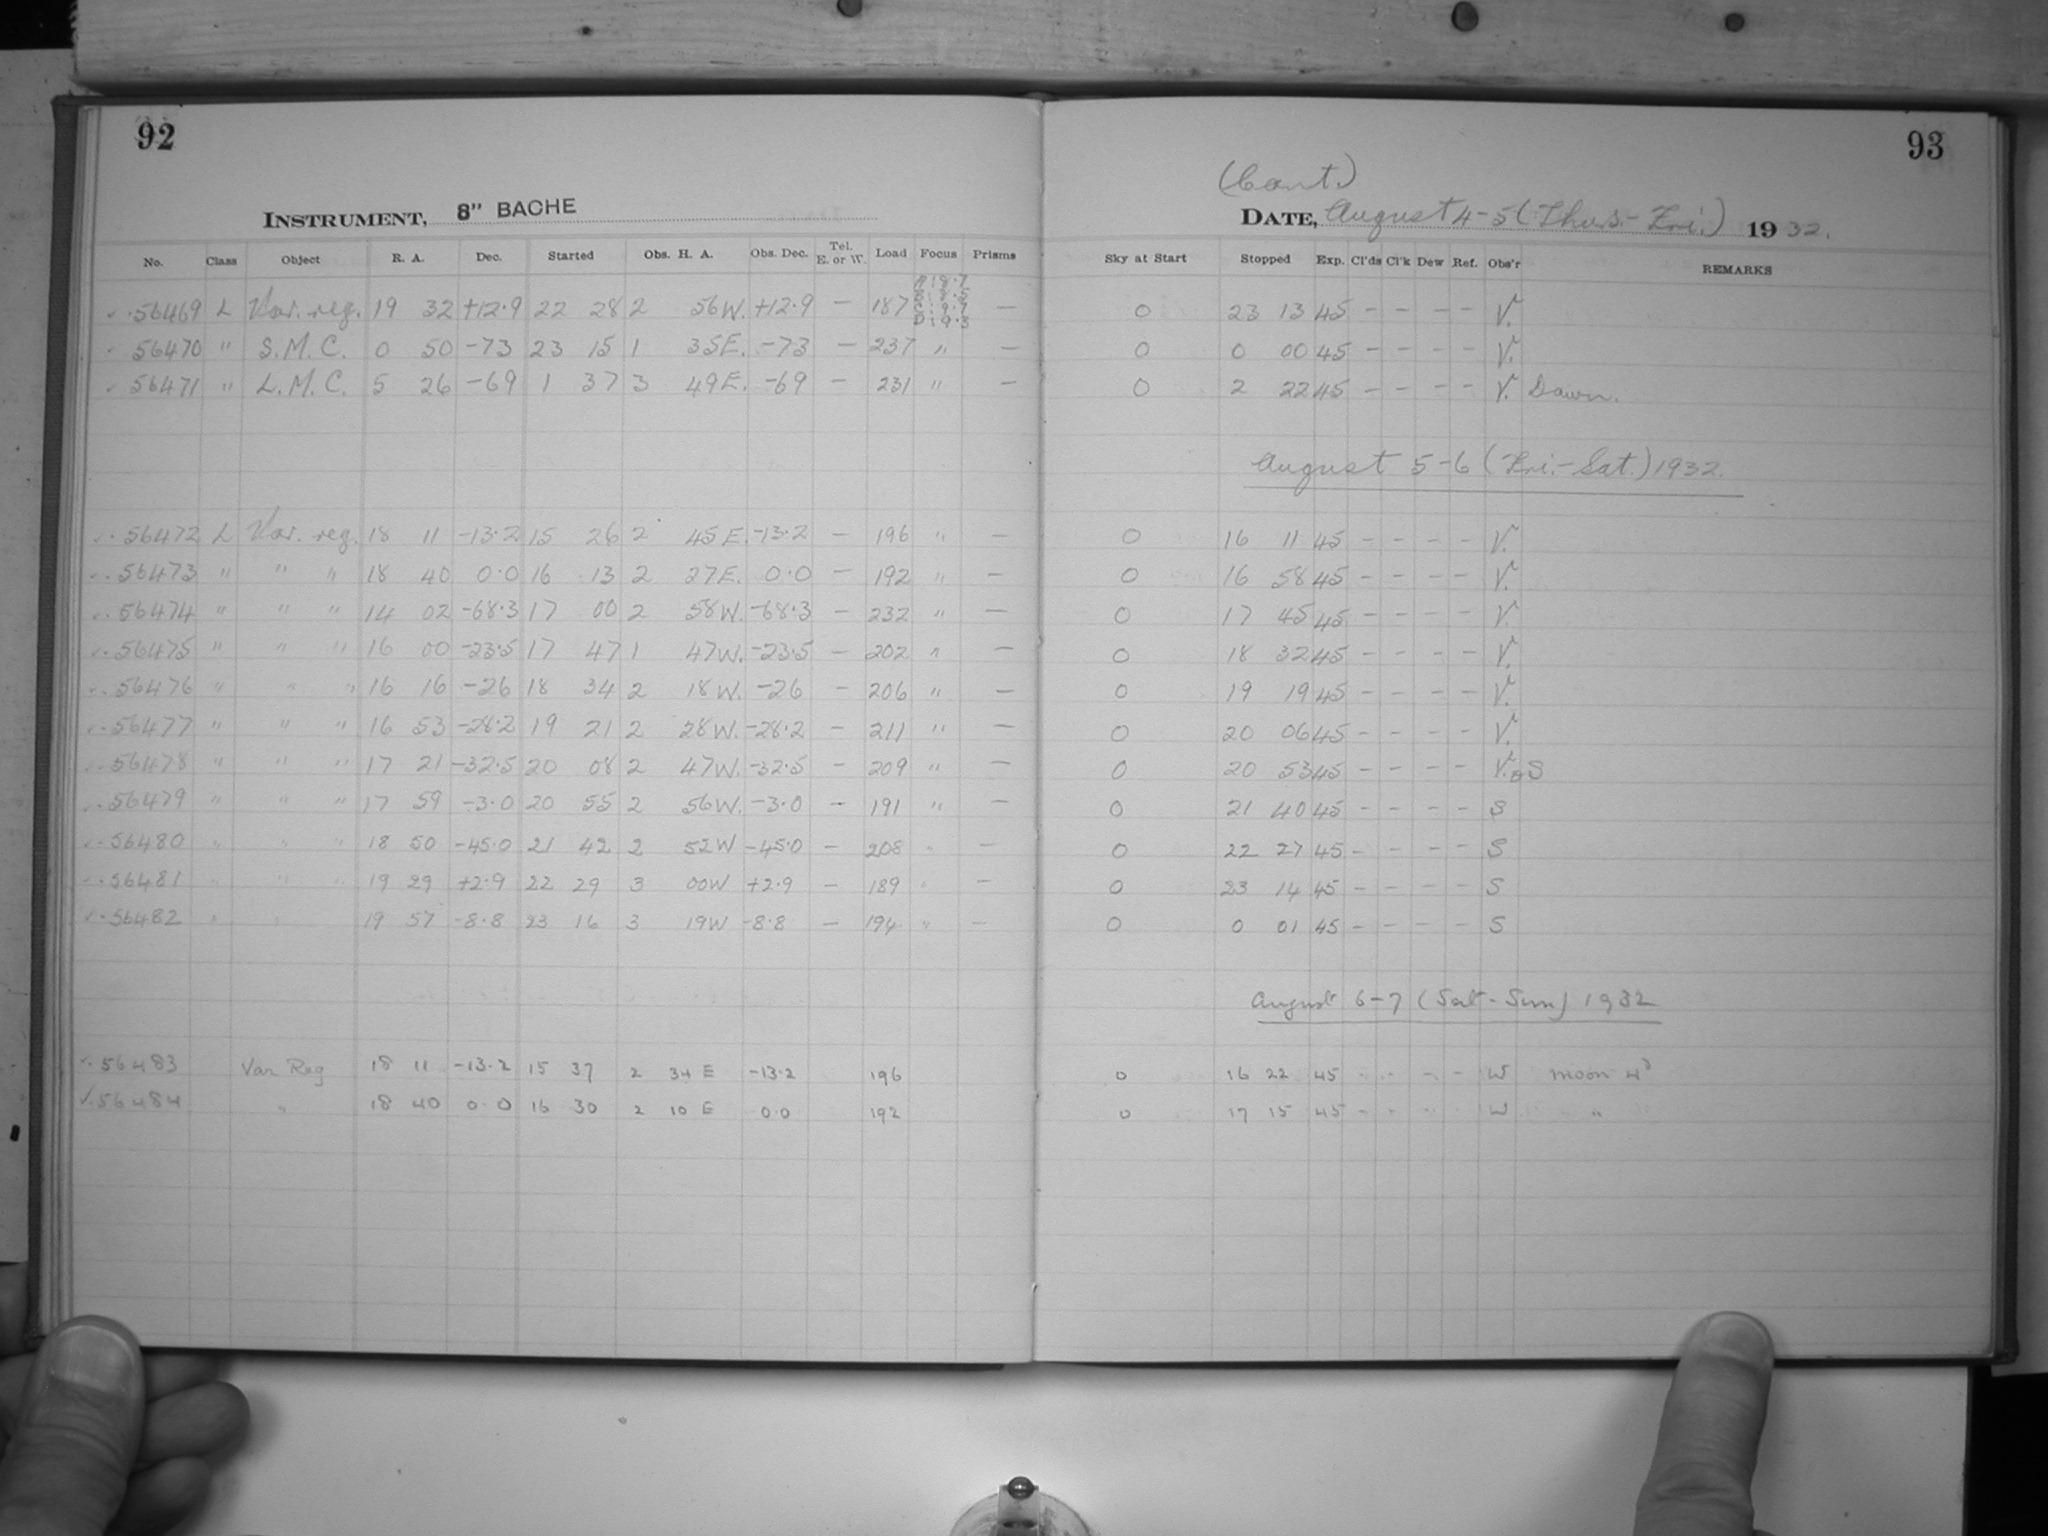 92
INSTRUMENT, 8" BACHE
No. Class Object R. A. Dec. Started Obs. H. A. Obs. Dec. Tel. E. or W. Load Focus Prisms
56469 L Var. reg. 19 32 +12.9 22 28 2 56W. +12.9 — 187 —
56470 " S.M.C. 0 50 -73 23 15 1 35E. -73 — 237 " —
56471 " L.M.C. 5 26 -69 1 37 3 49E. -69 — 231 " —
56472 L Var. reg. 18 11 -13.2 15 26 2 45E. -13.2 — 196 " —
56473 " " " 18 40 0.0 16 13 2 27E. 0.0 — 192 " —
56474 " " " 14 02 -68.3 17 00 2 58W. -68.3 — 232 " —
56475 " " " 16 00 -23.5 17 47 1 47W. -23.5 — 202 " —
56476 " " " 16 16 -26 18 34 2 18W. -26 — 206 " —
56477 " " " 16 53 -28.2 19 21 2 28W. -28.2 — 211 " —
56478 " " " 17 21 -32.5 20 08 2 47W. -32.5 — 209 " —
56479 " " " 17 59 -3.0 20 55 2 56W. -3.0 — 191 " —
56480 " " " 18 50 -45.0 21 42 2 52W -45.0 — 208 " —
56481 " " " 19 29 +2.9 22 29 3 00W +2.9 — 189 " —
56482 " " 19 57 -8.8 23 16 3 19W -8.8 — 194 " —
56483 Var Reg 18 11 -13.2 15 37 2 34 E -13.2 196
56484 " 18 40 0.0 16 30 2 10 E 0.0 192
93
(Cont.)
DATE, August 4-5 (Thurs.-Fri.) 1932.
Sky at Start Stopped Exp. Cl'ds Cl'k Dew Ref. Obs'r REMARKS
0 23 13 45 — — — — V.
0 0 00 45 — — — — V.
0 2 22 45 — — — — V. Dawn.
August 5-6 (Fri.-Sat.) 1932.
0 16 11 45 — — — — V.
0 16 58 45 — — — — V.
0 17 45 45 — — — — V.
0 18 32 45 — — — — V.
0 19 19 45 — — — — V.
0 20 06 45 — — — — V.
0 20 53 45 — — — — V. S
0 21 40 45 — — — — S
0 22 27 45 — — — — S
0 23 14 45 — — — — S
0 0 01 45 — — — — S
August 6-7 (Sat-Sun) 1932
0 16 22 45 — — — — W moon
0 17 15 45 — — — — W "